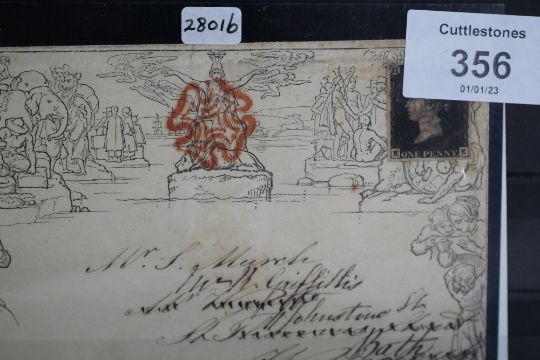 28016
Cuttlestones
356
01/01/23
K ONE PENNY K
Mr. S. Murch
Mr Griffiths
Johnstone St
Bath